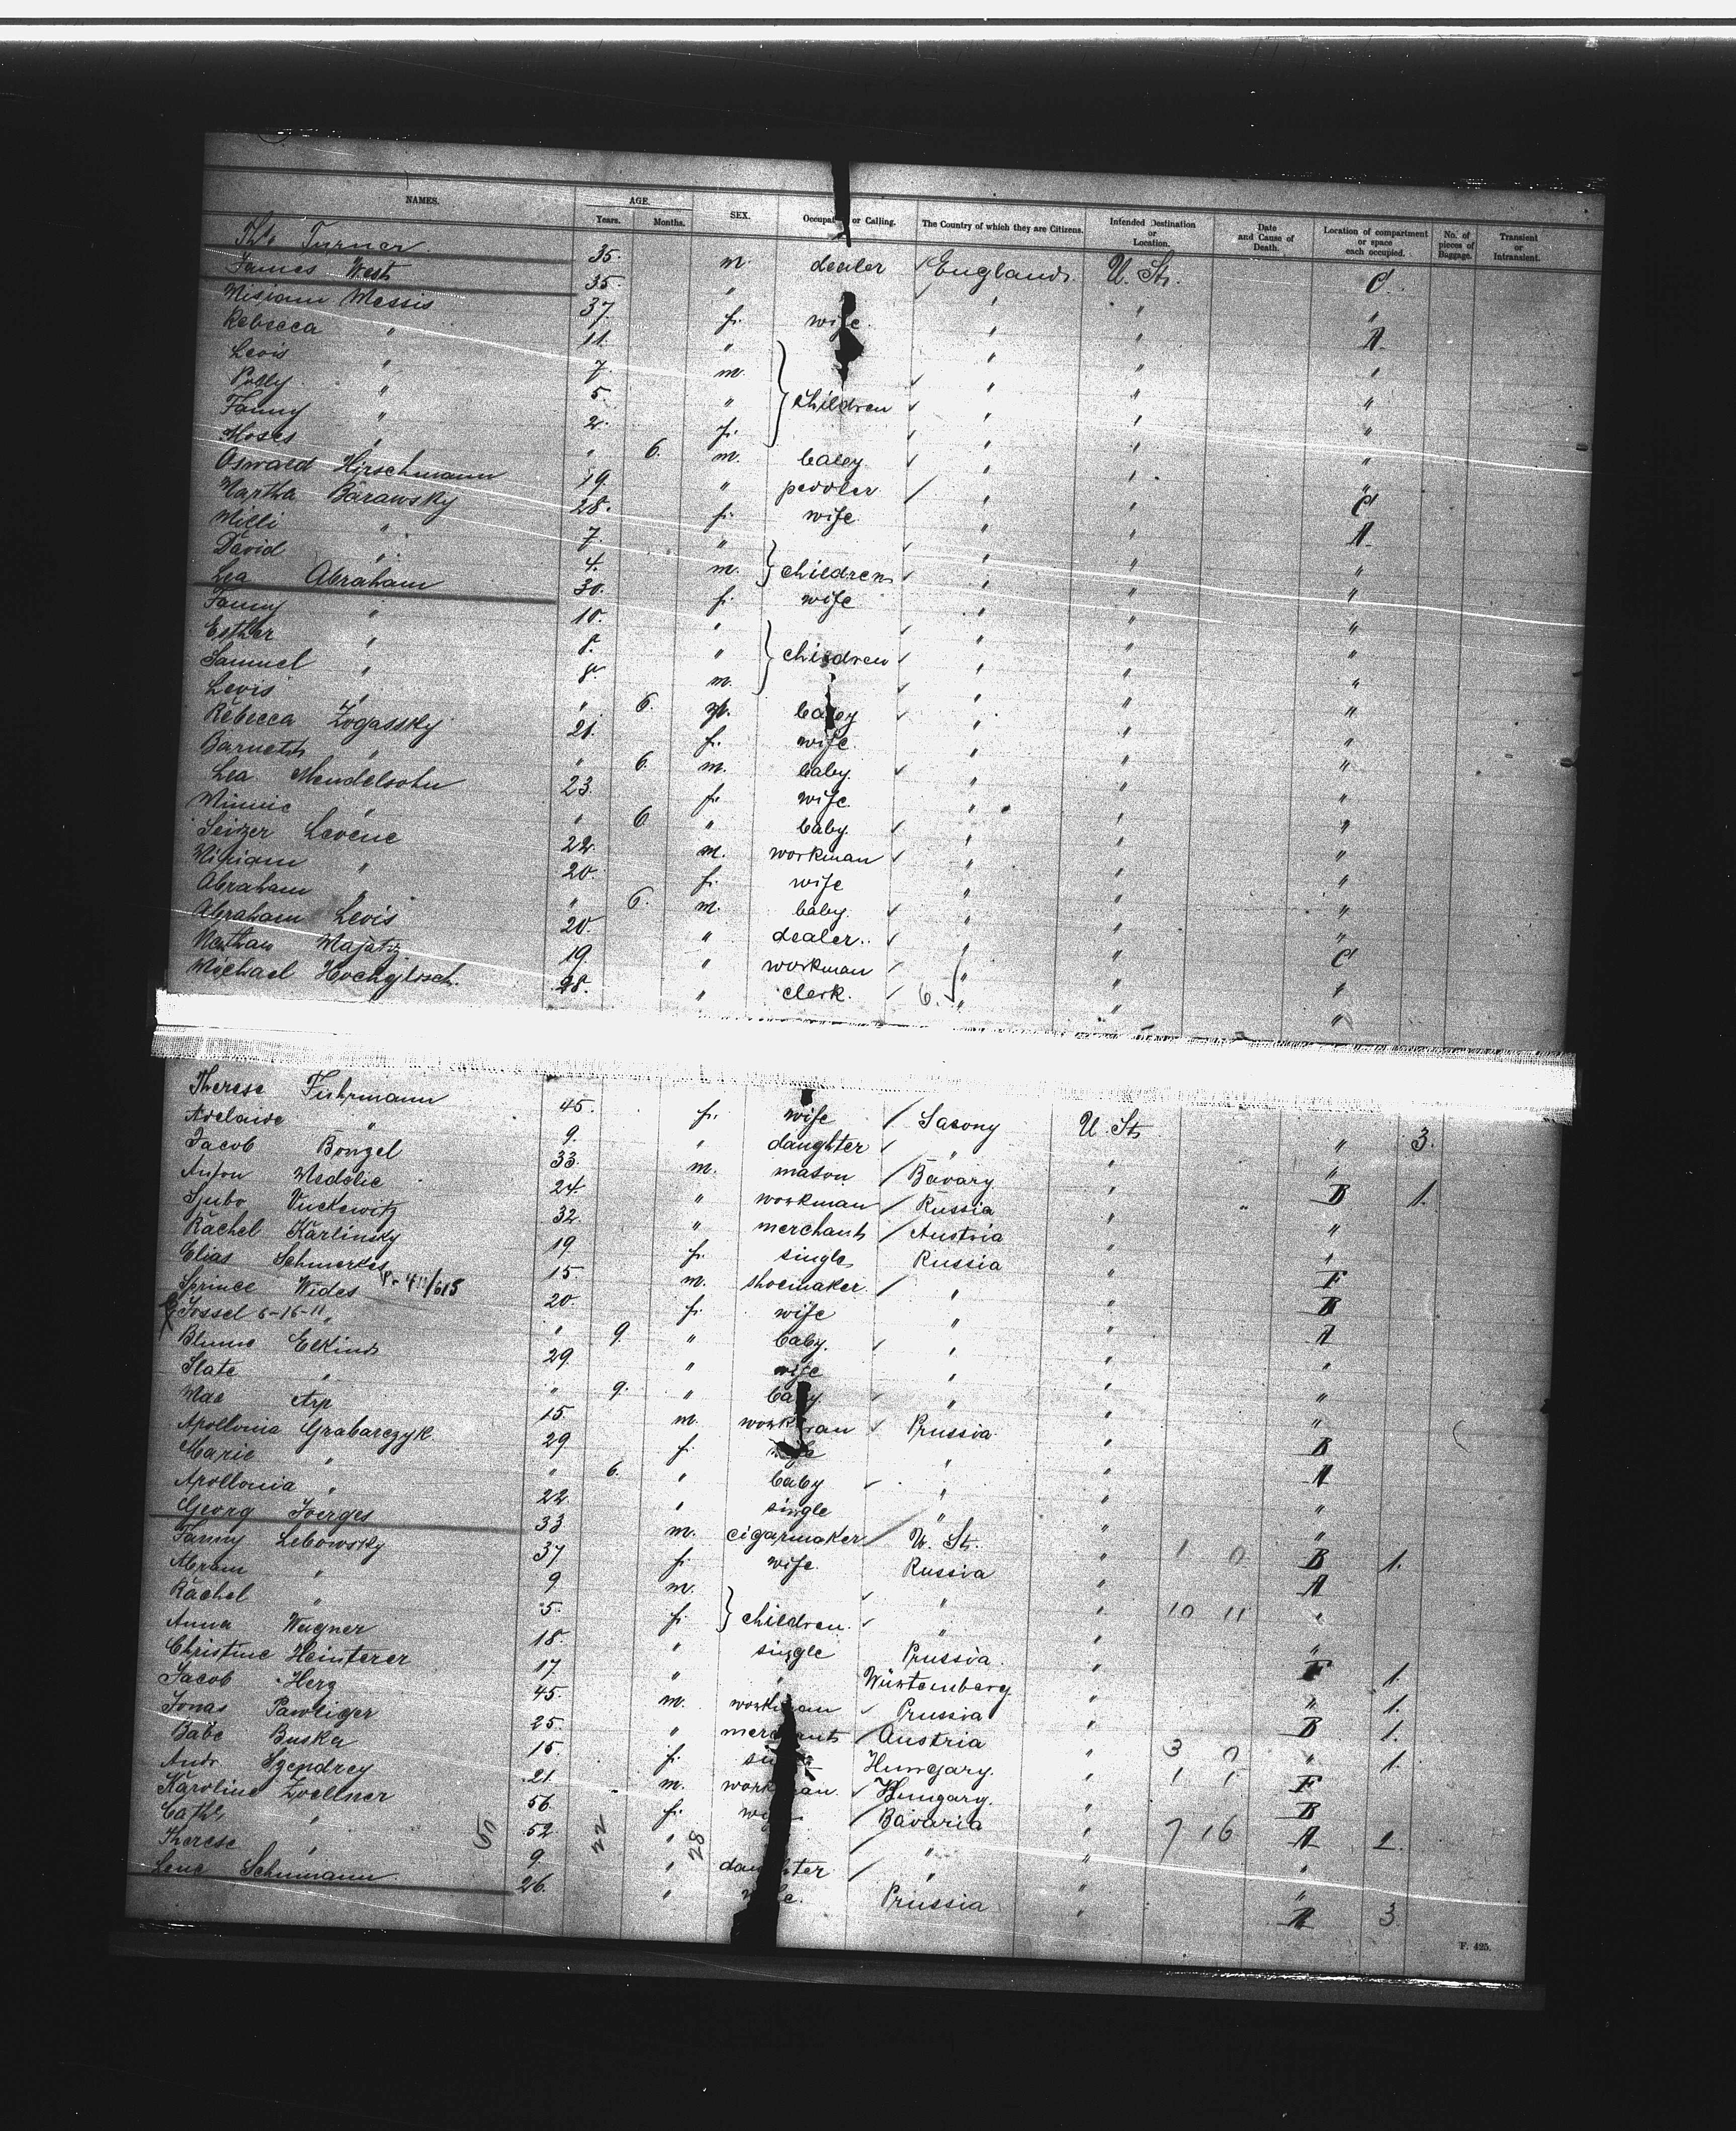 NAMES. AGE. Years. Months. SEX. Occupation or Calling. The Country of which they are Citizens. Intended Destination or Location. Date and Cause of Death. Location of compartment or space each occupied. No. of pieces of Baggage. Transient or Intransient.
Ths Turner 35. m. dealer England U. St. C
James West 35. " " " "
Miriam Messis 37. f. wife " " A
Rebecca " 11. " " " "
Levis " 7. m. " " "
Polly " 5. " children " " "
Fanny " 2. f. " " "
Moses " " 6. m. baby " " "
Oswald Hirschmann 19. " peddler " " C
Martha Barawsky 28. f. wife " " A
Milli " 7. " " " "
David " 4. m. children " " "
Lea Abraham 30. f. wife " " "
Fanny " 10. " " " "
Esther " 8. " children " " "
Samuel " 8. m. " " "
Levis " " 6. baby " " "
Rebecca Zogassky 21. f. wife " " "
Barnett " " 6. m. baby. " " "
Lea Mendelsohn 23. f. wife " " "
Minnie " " 6 " baby. " " "
Leizer Levene 22. m. workman " " "
Miriam " 20. f. wife " " "
Abraham " " 6. m. baby. " " "
Abraham Levis 20. " dealer. " " C
Nathan 19. " workman " " "
Michael 28. " clerk. 6. " " "
Therese Fuhrmann 45. f. wife Saxony U. St. " 3.
Adelaide " 9. " daughter " " "
Jacob Bongel 33. m. mason Bavary " B 1.
Anton 24. " workman Russia " "
Ljubo Vuckewitz 32. " merchant Austria " "
Rachel Karlinsky 19 f. single Russia " F
Elias Schmerkes 15. m. shoemaker " " B
Sprince Wides 20. f. wife " " A
Jossel 6-16-11 " " 9. " baby. " " "
Blume Elkind 29. " wife " " "
Slate " " 9. " baby " " "
Max Arp 15. m. workman Prussia " B
Apollonia Grabarczyk 29 f. wife " " A
Marie " " 6. " baby " " "
Apollonia " 22 " single " " "
Georg Joerges 33 m. cigarmaker U. St. " 1 0 B 1.
Fanny Lebowsky 37 f. wife. Russia " A
Abram " 9 m. " " 10 11 "
Rachel " 5. f. children. " " "
Anna Wagner 18. " single Prussia. " F 1.
Christine Heinterer 17 " " Würtemberg " " 1.
Jacob Herz 45. m. workman Prussia " B 1.
Jonas Pawliger 25. " merchant Austria " 3 0 " 1.
Babe Buska 15. f. Hungary. " 1 1 F
Andr Szendrey 21. m. workman. Hungary. " B
Karoline Zoellner 56. f. wife Bavaria " 7 16 A 2.
Cath. " 50 52 22 " 28 " " "
Therese " 9. " daughter " " "
Lene Schumann 26. " wife. Prussia " A 3
F. 425.